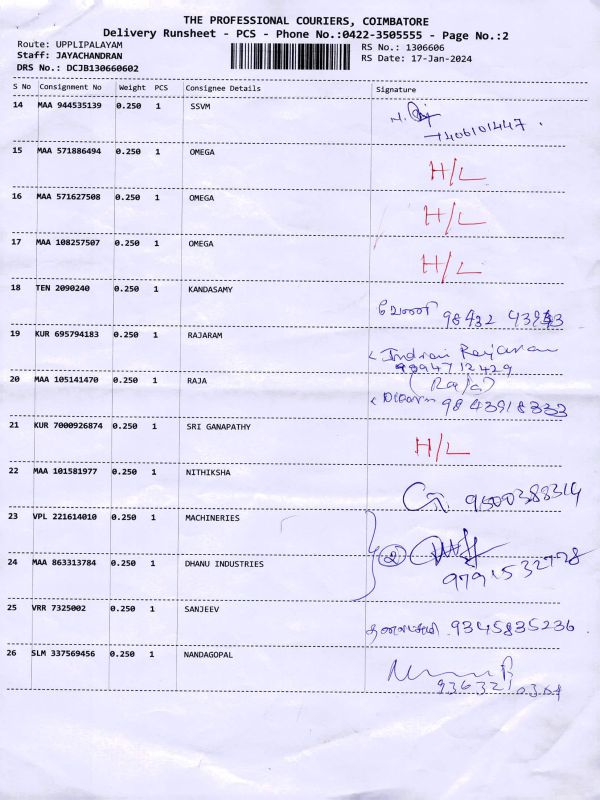 THE PROFESSIONAL COURIERS, COIMBATORE
Delivery Runsheet - PCS - Phone No.:0422-3505555 - Page No.:2
Route: UPPLIPALAYAM
Staff: JAYACHANDRAN
DRS No.: DCJB130660602
RS No.: 1306606
RS Date: 17-Jan-2024
S No Consignment No Weight PCS Consignee Details Signature
14 MAA 944535139 0.250 1 SSVM
7406101447.
15 MAA 571886494 0.250 1 OMEGA H/L
16 MAA 571627508 0.250 1 OMEGA H/L
17 MAA 108257507 0.250 1 OMEGA H/L
18 TEN 2090240 0.250 1 KANDASAMY
98432
19 KUR 695794183 0.250 1 RAJARAM
Indian Rajaram
9894712429
20 MAA 105141470 0.250 1 RAJA (Raja)
9843918333
21 KUR 7000926874 0.250 1 SRI GANAPATHY H/L
22 MAA 101581977 0.250 1 NITHIKSHA
9500383314
23 VPL 221614010 0.250 1 MACHINERIES
24 MAA 863313784 0.250 1 DHANU INDUSTRIES 2
9791532778
25 VRR 7325002 0.250 1 SANJEEV
9345835236
26 SLM 337569456 0.250 1 NANDAGOPAL